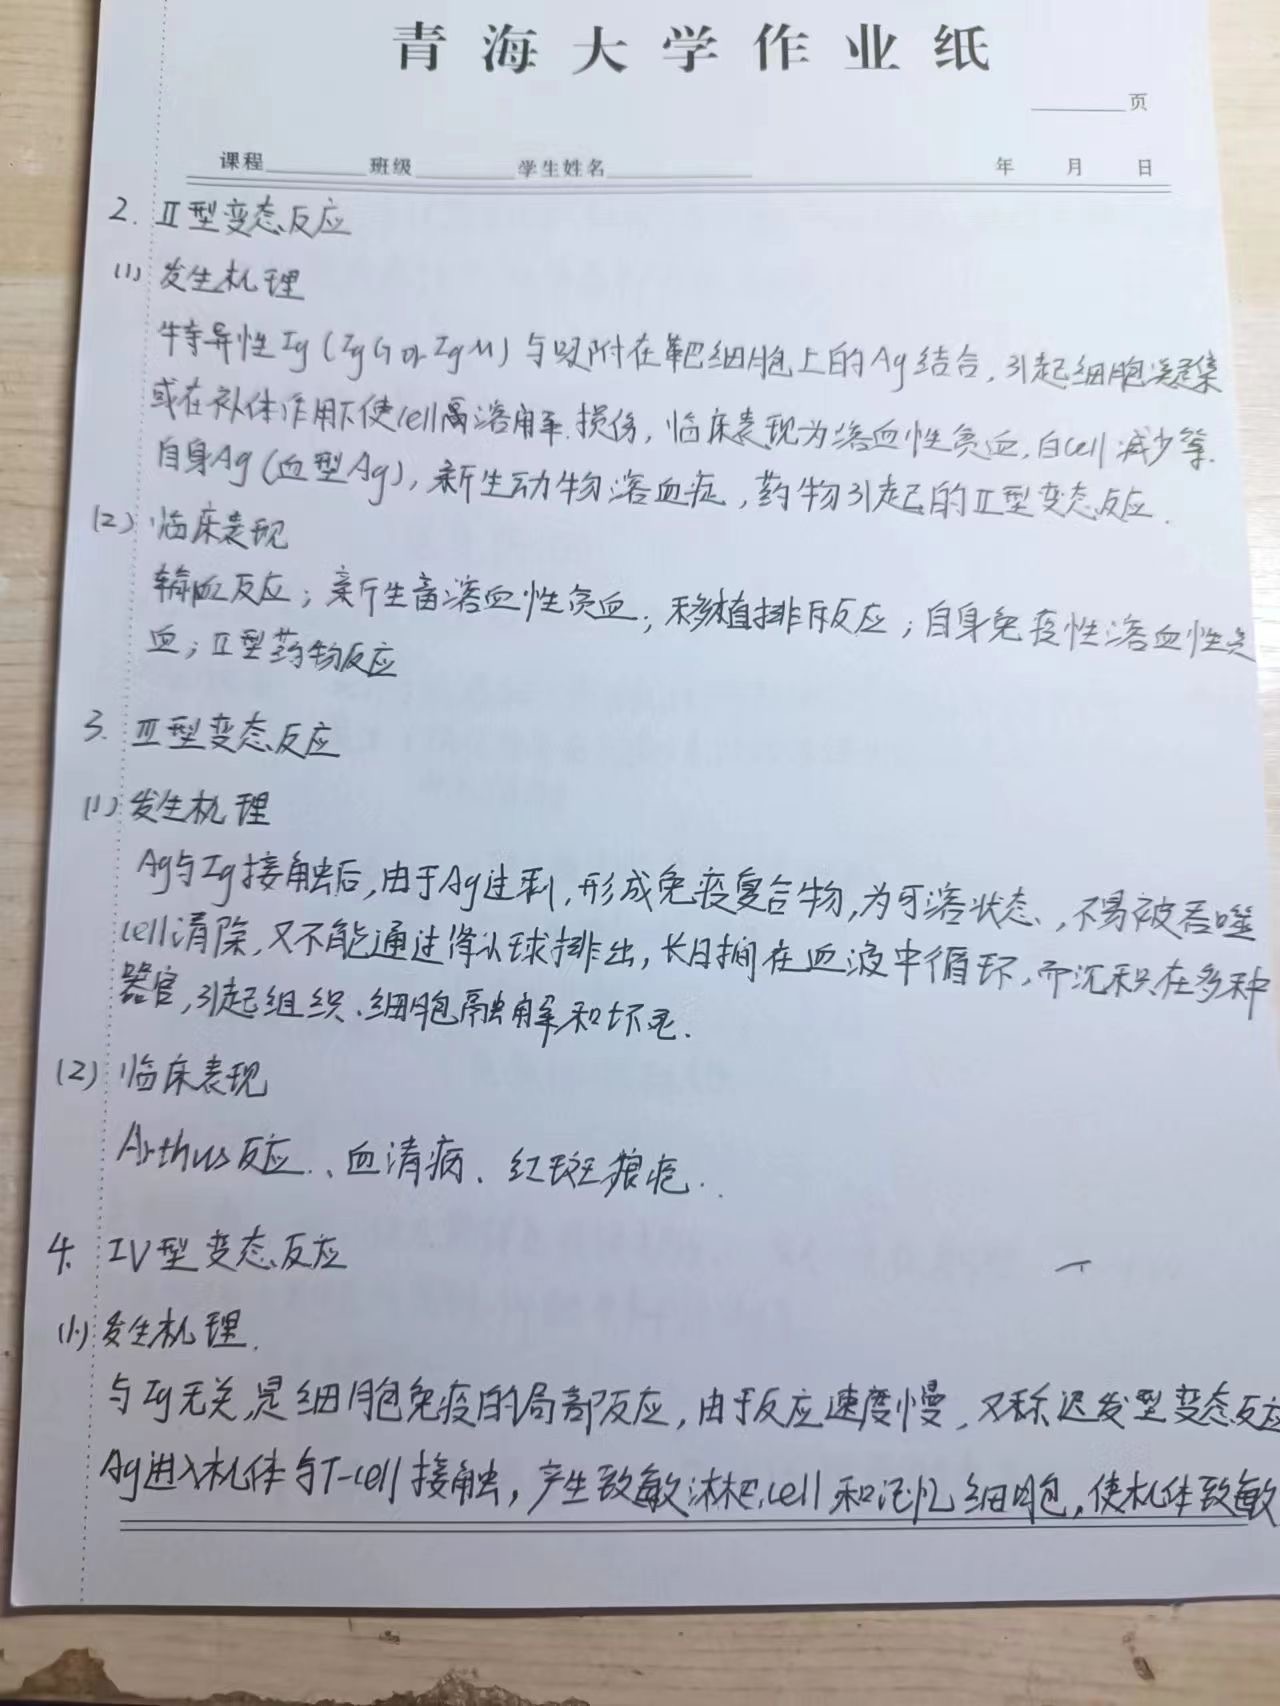 青海大学作业纸
页
课程 班级 学生姓名 年 月 日
2. Ⅱ型变态反应
(1) 发生机理
特异性Ig(IgG or IgM)与吸附在靶细胞上的Ag结合,引起细胞凝集
或在补体作用下使cell溶解.损伤,临床表现为溶血性贫血,白cell减少等.
自身Ag(血型Ag),新生动物溶血症,药物引起的Ⅱ型变态反应.
(2) 临床表现
输血反应;新生畜溶血性贫血;移植排斥反应;自身免疫性溶血性贫
血;Ⅱ型药物反应
3. Ⅲ型变态反应
(1) 发生机理
Ag与Ig接触后,由于Ag过剩,形成免疫复合物,为可溶状态,不易被吞噬
cell清除,又不能通过肾小球排出,长期在血液中循环,而沉积在多种
器官,引起组织、细胞融解和坏死.
(2) 临床表现
Arthus反应、血清病、红斑狼疮.
4. IV型变态反应
(1) 发生机理.
与Ig无关,是细胞免疫的局部反应,由于反应速度慢,又称迟发型变态反应
Ag进入机体与T-cell接触,产生致敏淋巴cell和记忆细胞,使机体致敏